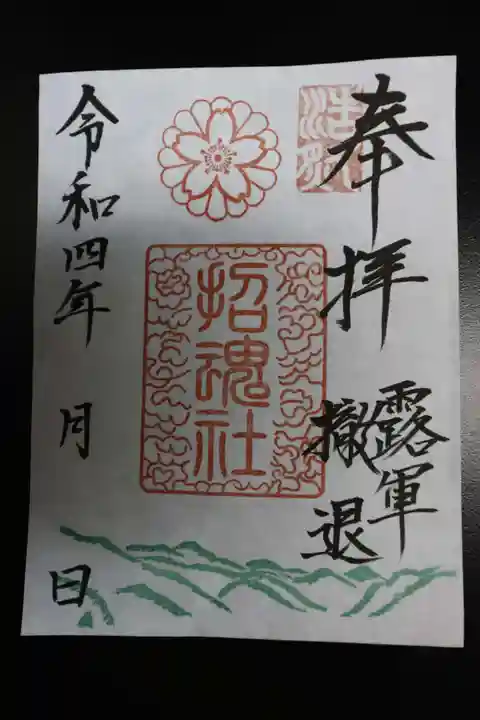 奉拝
露軍
撤退
招魂社
令和四年 月 日